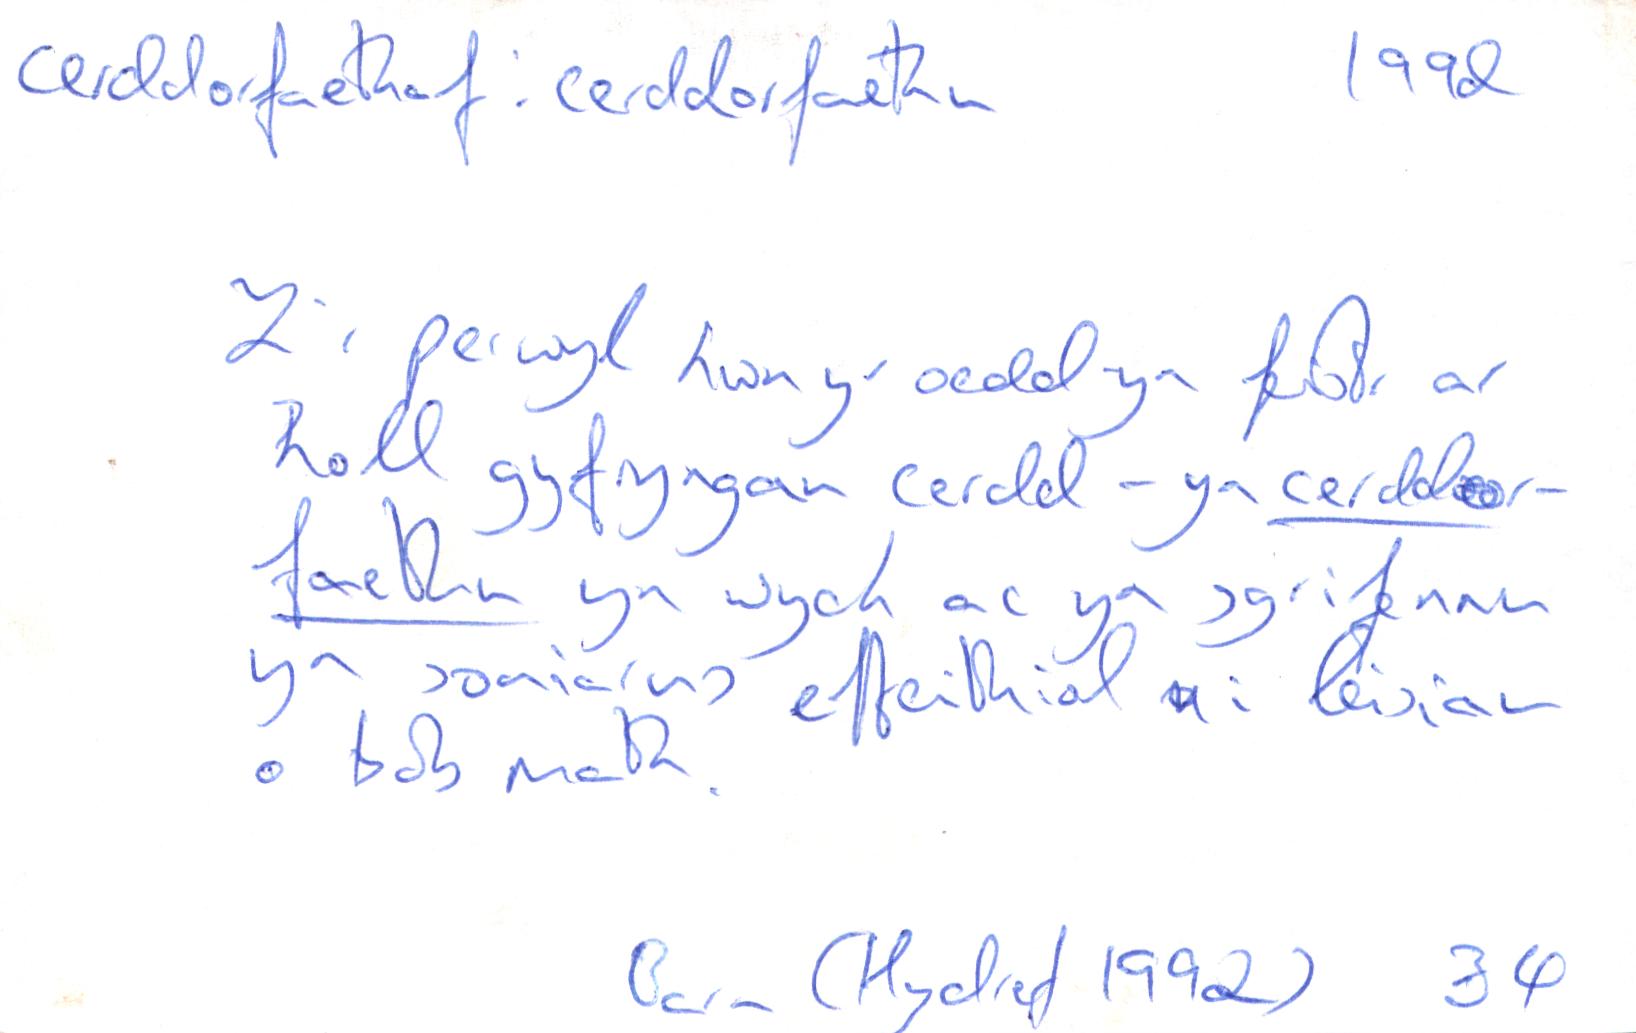 cerddorfaethaf : cerddorfaethu 1992
I'r perwyl hwn yr oedd yn feistr ar
holl gyfryngau cerdd - yn cerddor-
faethu yn wych ac yn sgrifennu
yn soniarus effeithiol i leisiau
o bob math.
Barn (Hydref 1992) 34